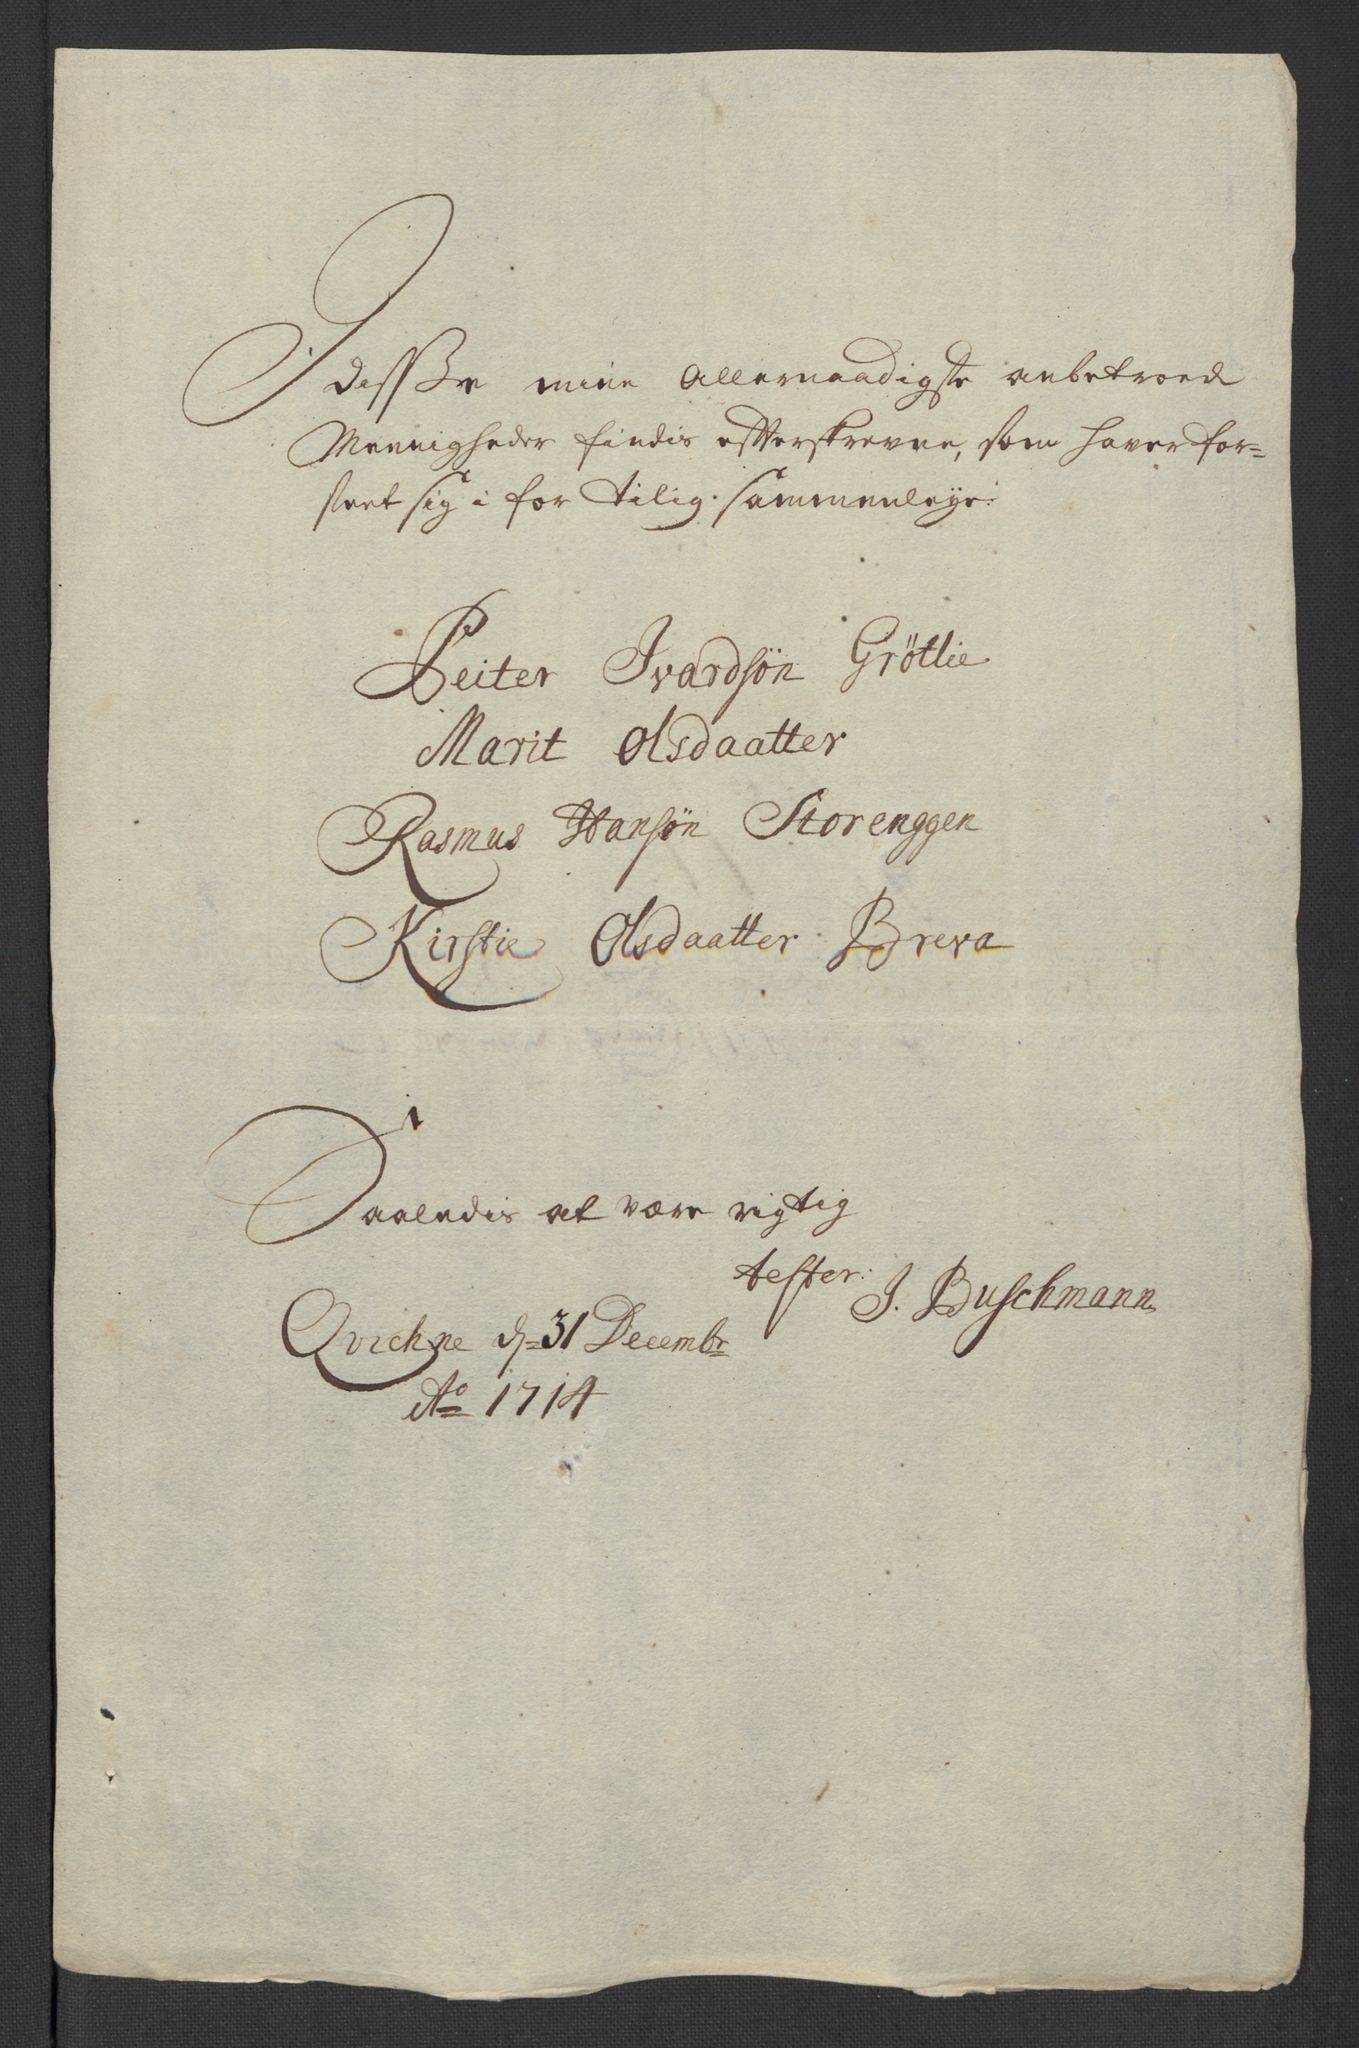 I disse mine allernaadigste anbetroed
Menigheder findis efterskrevne, som haver for-
seet sig i for tilig sammenleye:
Peiter Ivardsøn Grötlie
Marit Olsdaatter
Rasmus Hansøn Storenggen
Kirstie Olsdaatter Breva
Saaledis at være rigtig
tester: J. Buschmann
Qvichne d: 31 Decembr
Ao 1714